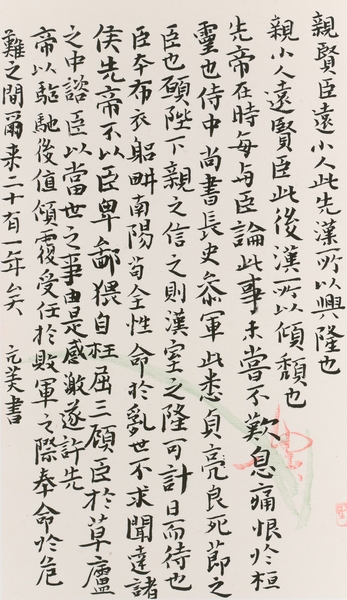 親賢臣遠小人此先漢所以興隆也
親小人遠賢臣此後漢所以傾頹也
先帝在時每与臣論此事未嘗不歎息痛恨於桓
靈也侍中尚書長史參軍此悉貞亮良死節之
臣也願陛下親之信之則漢室之隆可計日而待也
臣本布衣躬畊南陽苟全性命於亂世不求聞達諸
侯先帝不以臣卑鄙猥自枉屈三顧臣於草廬
之中諮臣以當世之事由是感激遂許先
帝以駈馳後值傾覆受任於敗軍之際奉命於危
難之間爾来二十有一年矣 元美書